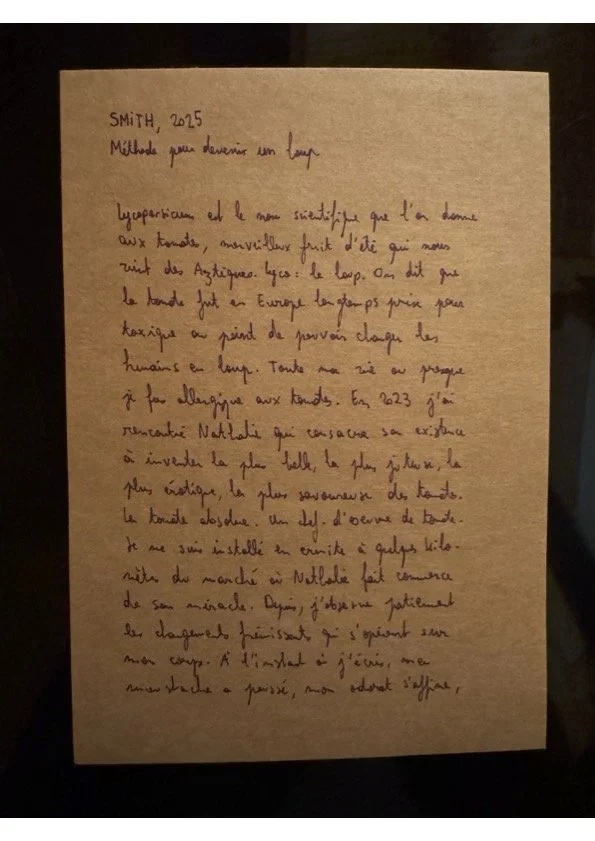 SMiTH, 2025
Méthode pour devenir un loup
Lycopersicum est le nom scientifique que l'on donne
aux tomates, merveilleux fruit d'été qui nous
vient des Aztèques. Lyco : le loup. On dit que
la tomate fut en Europe longtemps prise pour
toxique au point de pouvoir changer les
humains en loup. Toute ma vie ou presque
je fus allergique aux tomates. En 2023 j'ai
rencontré Nathalie qui consacre son existence
à inventer la plus belle, la plus juteuse, la
plus érotique, la plus savoureuse des tomates.
La tomate absolue. Un chef. d'oeuvre de tomate.
Je me suis installé en ermite à quelques kilo-
mètres du marché où Nathalie fait commerce
de son miracle. Depuis, j'observe patiemment
les changements frémissants qui s'opèrent sur
mon corps. À l'instant où j'écris, ma
moustache a poussé, mon odorat s'affine,